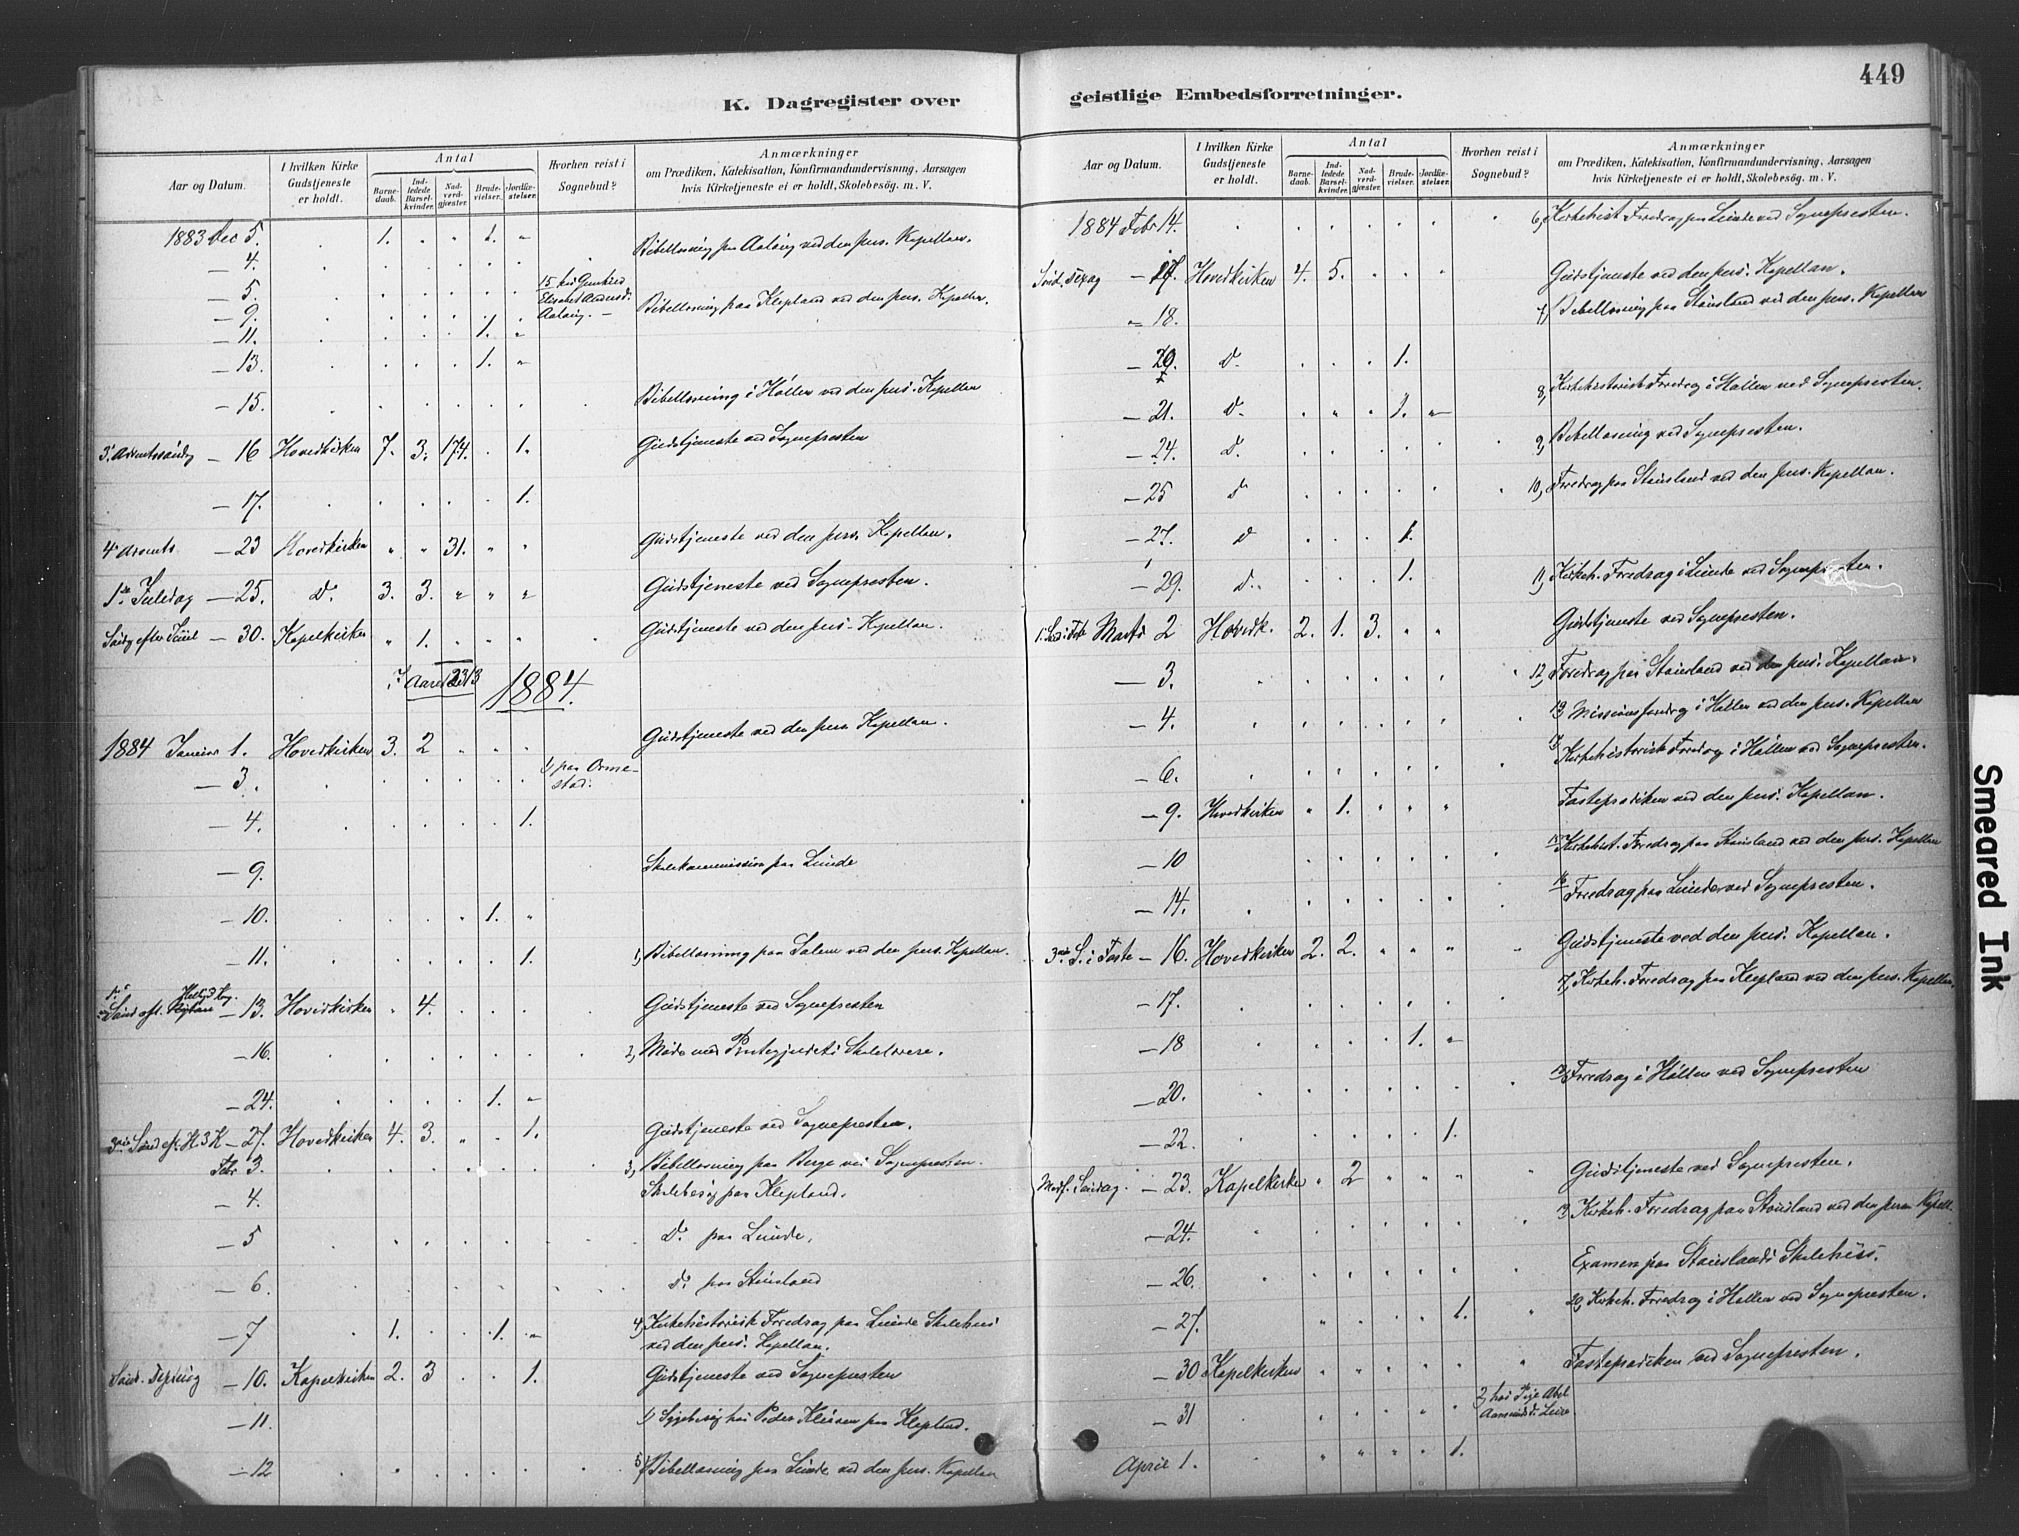 449
K. Dagregister over geistlige Embedsforretninger.
Aar og Datum.
I hvilken Kirke Gudstjeneste er holdt.
Antal
Barnedaab.
Indledede Barselkvinder.
Nadverdgjæster.
Brudevielser.
Jordfæstelser.
Hvorhen reist i Sognebud?
Anmærkninger
om Prædiken, Katekisation, Konfirmandundervisning, Aarsagen
hvis Kirketjeneste ei er holdt, Skolebesög. m. V.
1883 Dec 5. 1. 1.
— 4. Bibellæsning paa Aalvig ved den pers. Kapellan.
— 5. 15 hos
— 9. Bibellæsning paa Klepland ved den pers. Kapellan.
— 11. 1.
— 13. 1.
— 15. Bibellæsning i Höllen ved den pers. Kapellan
3. Adventssöndg — 16 Hovedkirken 7. 3. 174. 1. Gudstjeneste ved Sognepresten
— 17. 1.
4 Advents — 23 Hovedkirken 31. Gudstjeneste ved den pers. Kapellan.
1ste Juledag — 25. Do. 3. 3. Gudstjeneste ved Sognepresten.
Söndg efter Juul — 30. Kapelkirken 1. Gudstjeneste ved den pers. Kapellan.
I Aaret
1884.
1884 Januar 1. Hovedkirken 3. 2 Gudstjeneste ved den pers Kapellan.
— 3. 1) paa Ormestad.
— 4. 1.
— 9. Skolekommission paa Lunde
— 10. 1.
— 11. 1. 1, Bibellæsning paa Salem ved den pers. Kapellan.
— 13. Hovedkirken 4. Gudstjeneste ved Sognepresten
— 16. 2, Möde med Præstegjeldets Skolelærere.
— 24. 1.
3die Sönd ef. H 3 K — 27. Hovedkirken 4. 3. 1. Gudstjeneste ved Sognepresten.
Febr 3. 3, Bibellæsning paa Berge ved Sognepresten.
— 4. Skolebesög paa Klepland.
— 5 Do. paa Lunde,
— 6. Do. paa Stousland
— 7 1. 1. 4, Kirkehistorisk Foredrag paa Lunde Skolehus
ved den pers. Kapellan.
— 10. Kapelkirken 2. 3 1. Gudstjeneste ved Sognepresten
— 11. 1) Sygebesög hos Peder Kleven paa Klepland.
— 12 5, Bibellæsning paa Lunde ved den pers. Kapellan
Aar og Datum.
I hvilken Kirke Gudstjeneste er holdt.
Antal
Barnedaab.
Indledede Barselkvinder.
Nadverdgjæster.
Brudevielser.
Jordfæstelser.
Hvorhen reist i Sognebud?
Anmærkninger
om Prædiken, Katekisation, Konfirmandundervisning, Aarsagen
hvis Kirketjeneste ei er holdt, Skolebesög. m. V.
1884 Febr 14. 6, Kirkehist. Foredrag paa Lunde ved Sognepresten.
Sönd. Sexag — 17. Hovedkirken 4. 5. Gudstjeneste ved den pers. Kapellan.
— 18. 7, Bibellæsning paa Stousland ved den pers. Kapellan
— 20. Do 1.
— 21. Do. 1. 8, Kirkehistorisk Foredrag i Höllen ved Sognepresten.
— 24. Do. 9, Bibellæsning ved Sognepresten.
— 25 Do 10, Foredrag paa Stousland ved den pers. Kapellan.
— 27. Do 1.
— 29. Do. 1. 11, Kirkeh. Foredrag i Lunde ved Sognepresten.
1. Sönd i Faste Marts 2 Hovedk. 2. 1. 3. Gudstjeneste ved Sognepresten.
— 3. 12, Foredrag paa Stousland ved den pers. Kapellan.
— 4. 13 Missionsforedrag i Höllen ved den pers. Kapellan
— 6. Kirkehistorisk Foredrag i Höllen ved Sognepresten.
— 9. Hovedkirken 1. Fasteprædiken ved den pers. Kapellan.
— 10 15 Kirkehist. Foredrag paa Stousland ved den pers. Kapellan
— 14. 16 Foredrag paa Lunde ved Sognepresten.
3die S. i Faste — 16. Hovedkirken 2. 2. Gudstjeneste ved den pers. Kapellan.
— 17. Kirkeh. Foredrag paa Klepland ved den pers. Kapellan.
— 18 1.
— 20. Foredrag i Höllen ved Sognepresten
— 22. 1.
Midf. Söndag. — 23. Kapelkirke 2 Gudstjeneste ved Sognepresten.
— 24. Kirkeh. Foredrag paa Stousland ved den pers Kapell.
— 26. Examen paa Stouslands Skolehus.
— 27. 1. 20, Kirkeh. Foredrag i Höllen ved Sognepresten.
— 30 Kapelkirken Fasteprædiken ved Sognepresten.
— 31 2, hos Pige Abel
April 1. 1.
Smeared Ink